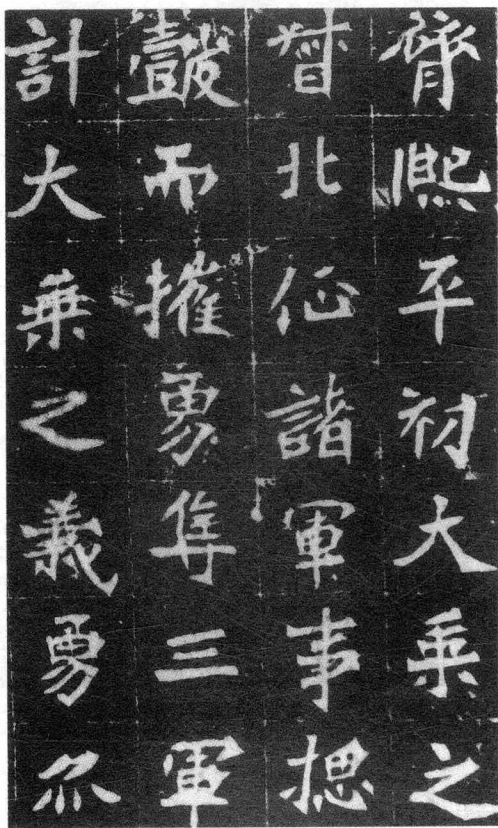 齊熙平初大乘之
督北征諸軍事揔
皷而摧勇隽三軍
計大乘之義勇尒